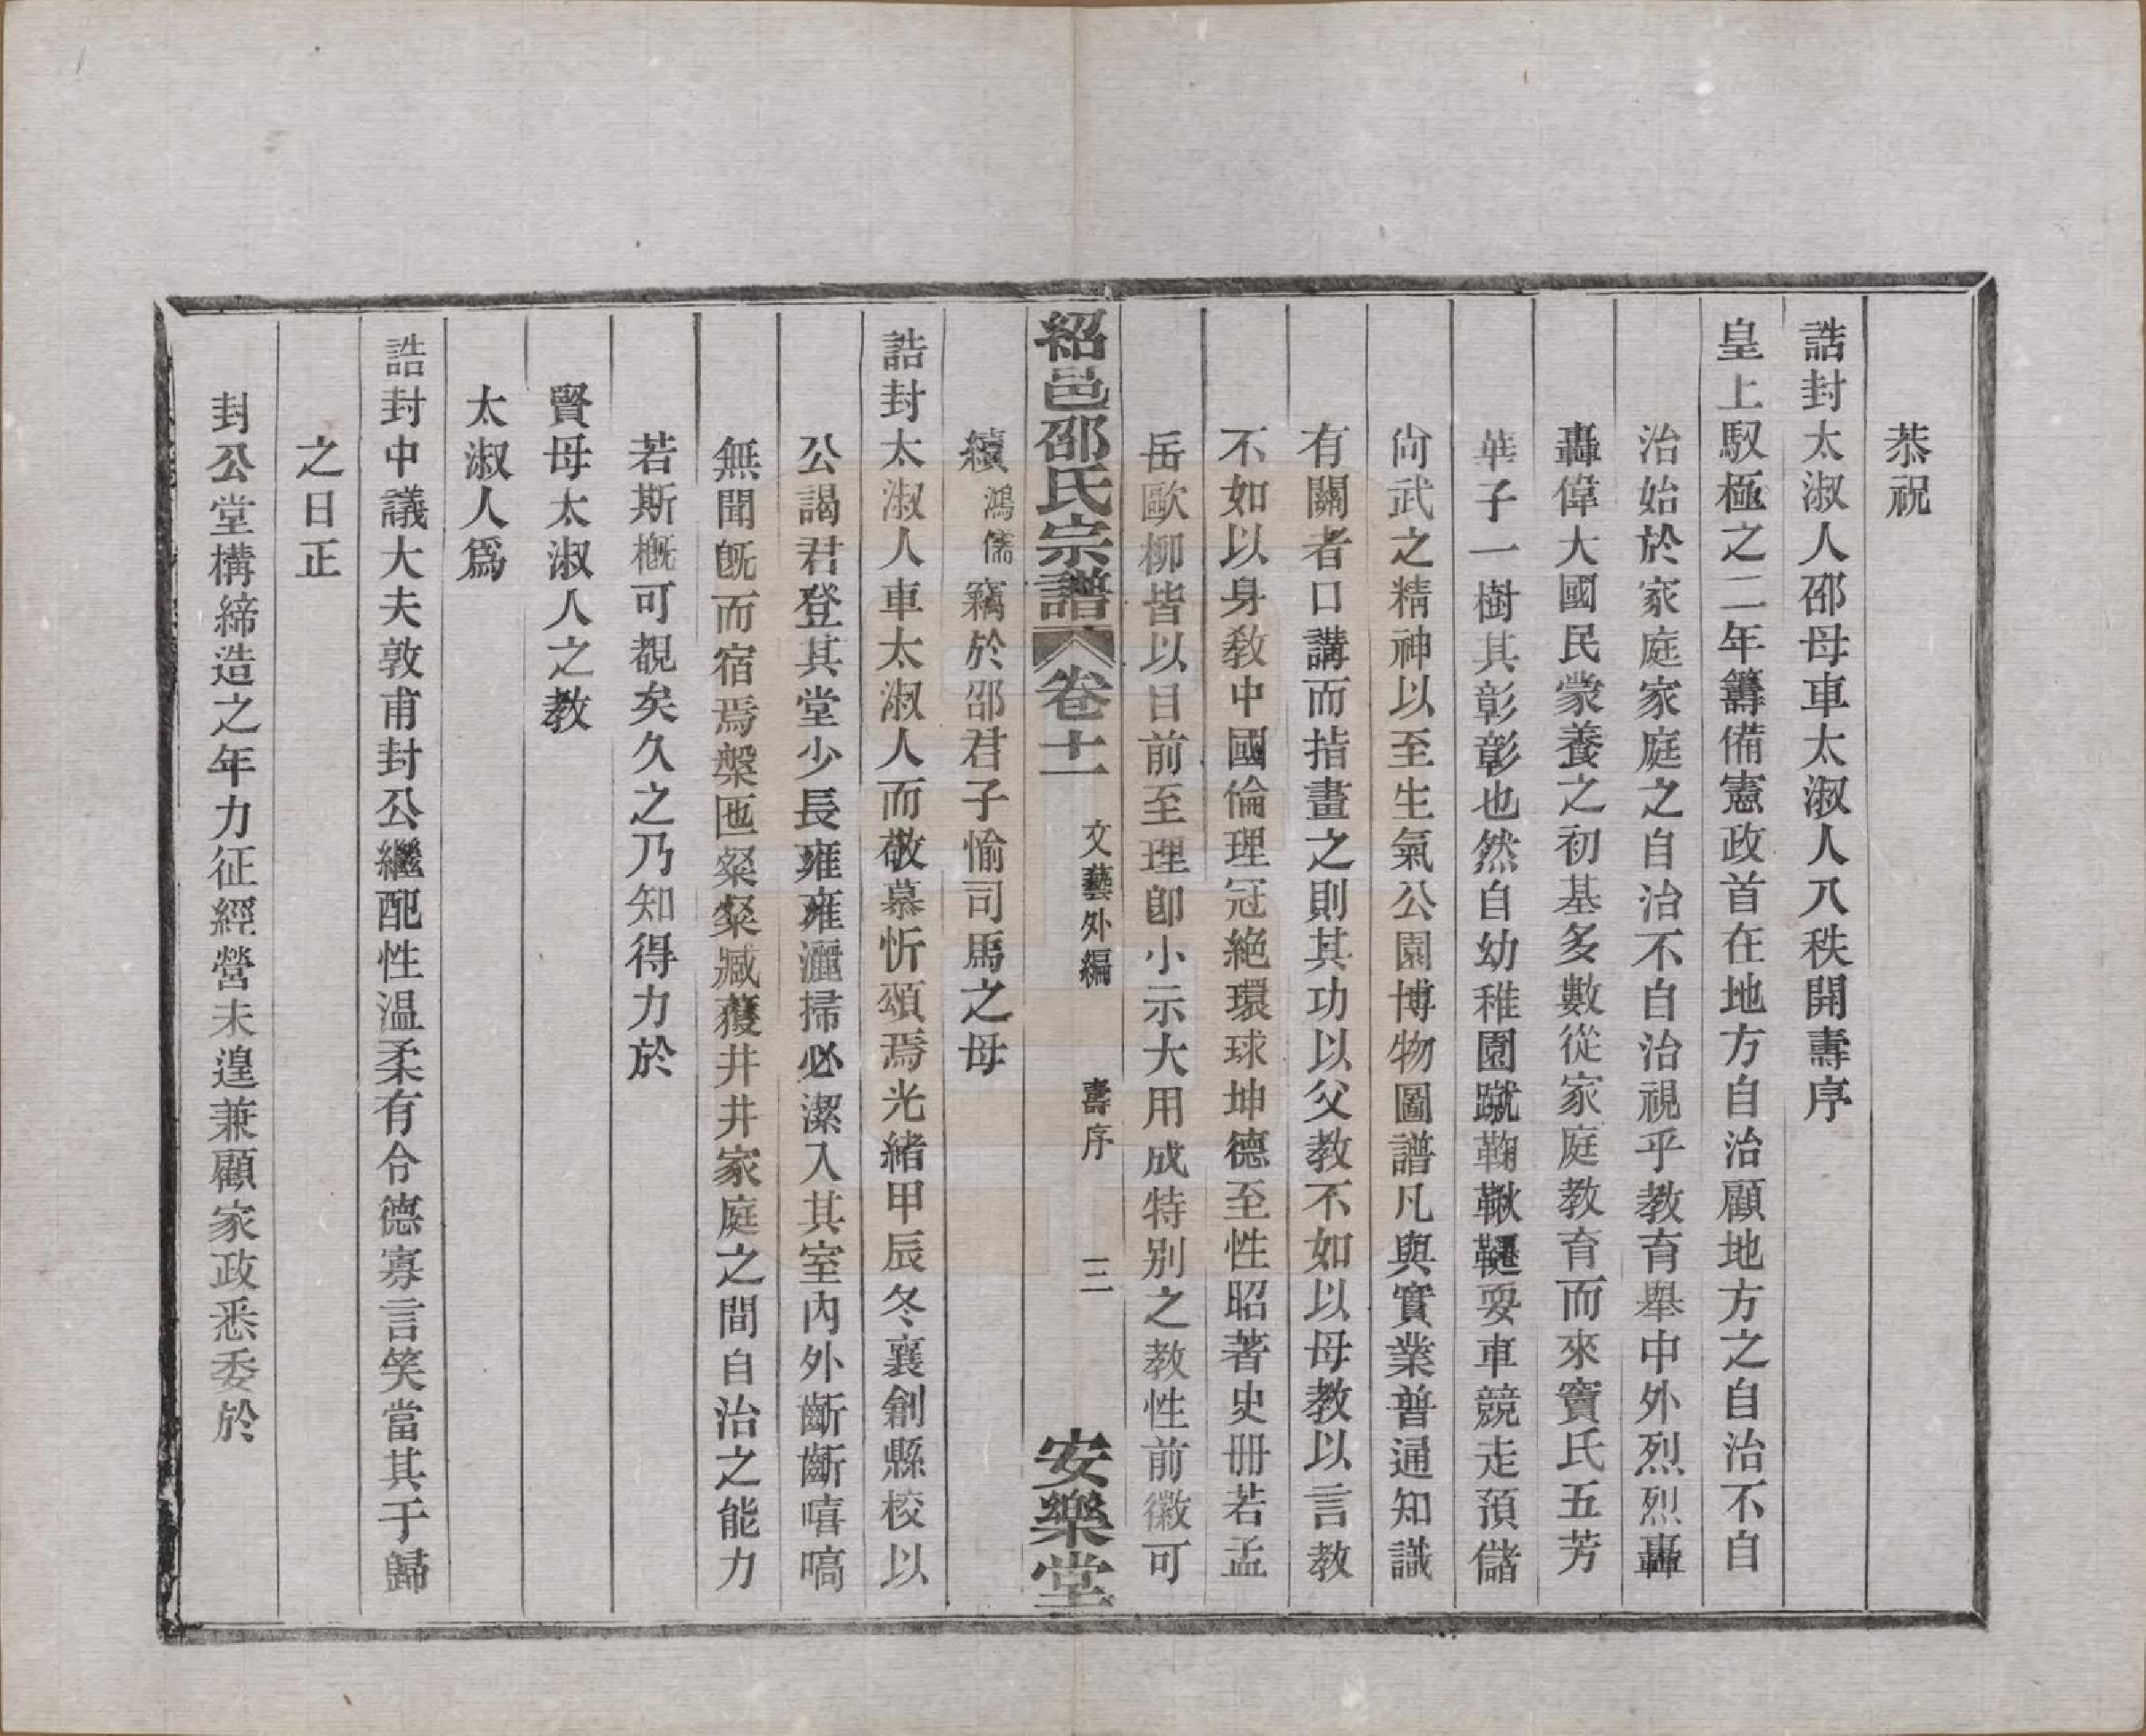 恭祝
誥封太淑人邵母車太淑人八秩開壽序
皇上馭極之二年籌備憲政首在地方自治顧地方之自治不自
治始於家庭家庭之自治不自治視乎教育舉中外烈烈轟
轟偉大國民蒙養之初基多數從家庭教育而來竇氏五芳
華子一樹其彰彰也然自幼稚園蹴鞠鞦韆耍車競走預儲
尙武之精神以至生氣公園博物圖譜凡與實業普通知識
有關者口講而指畫之則其功以父教不如以母教以言教
不如以身教中國倫理冠絕環球坤德至性昭著史冊若孟
岳歐柳皆以目前至理卽小示大用成特別之教性前徽可
紹邑邵氏宗譜 卷十一 文藝外編 壽序 三 安樂堂
續鴻儒竊於邵君子愉司馬之母
誥封太淑人車太淑人而敬慕忻頌焉光緒甲辰冬襄創縣校以
公謁君登其堂少長雍雍灑掃必潔入其室內外齗齗嘻嗃
無聞旣而宿焉槃匜粲粲臧獲井井家庭之間自治之能力
若斯槪可覩矣久之乃知得力於
賢母太淑人之教
太淑人爲
誥封中議大夫敦甫封公繼配性温柔有令德寡言笑當其于歸
之日正
封公堂構締造之年力征經營未遑兼顧家政悉委於